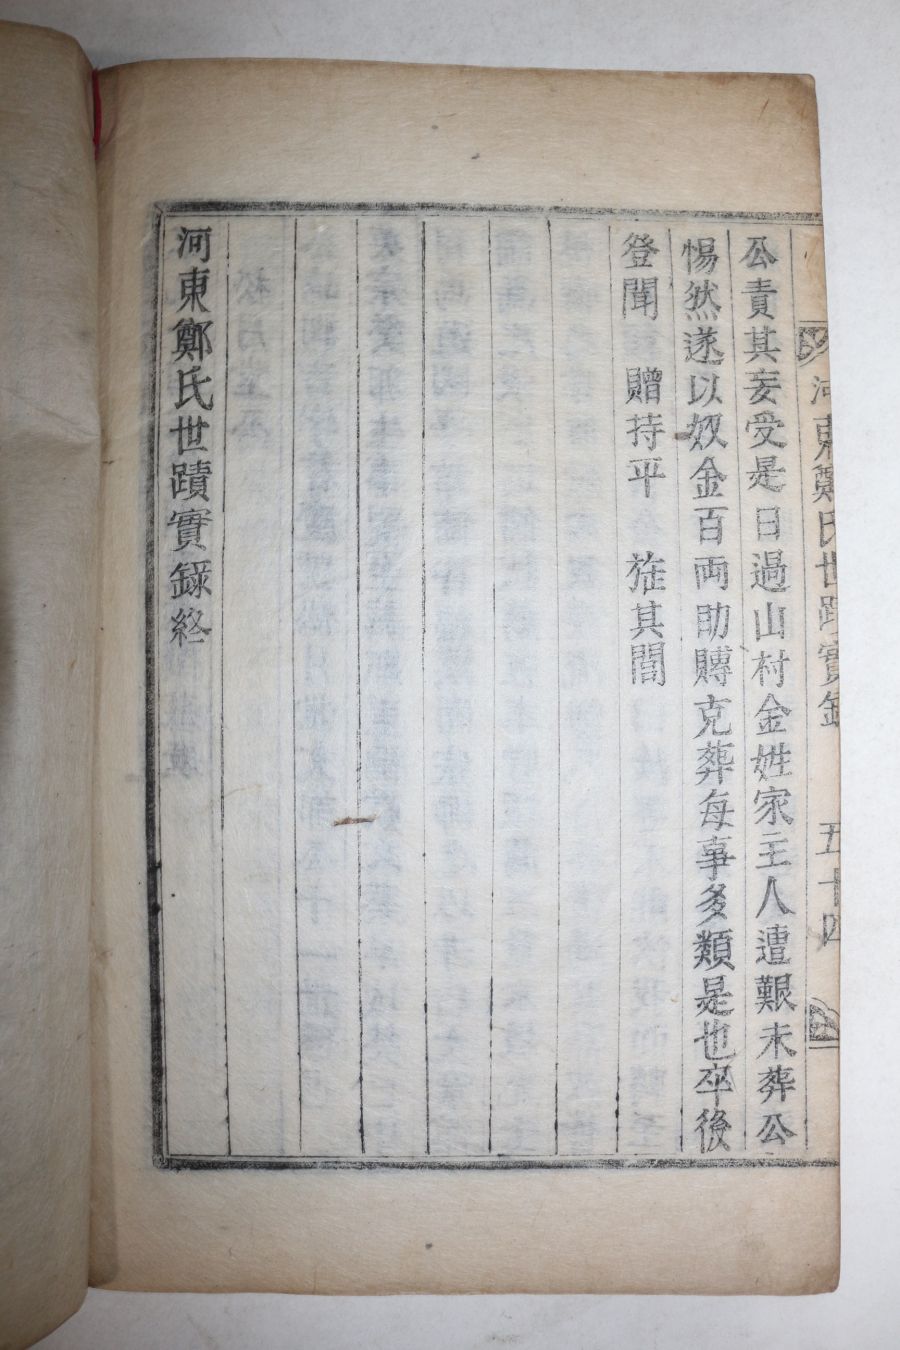 河東鄭氏世蹟實錄 五十四
公責其妄受是日過山村金姓家主人遭艱未葬公
惕然遂以奴金百両助賻克葬每事多類是也卒後
登聞 贈持平 㫌其閭
河東鄭氏世蹟實錄終